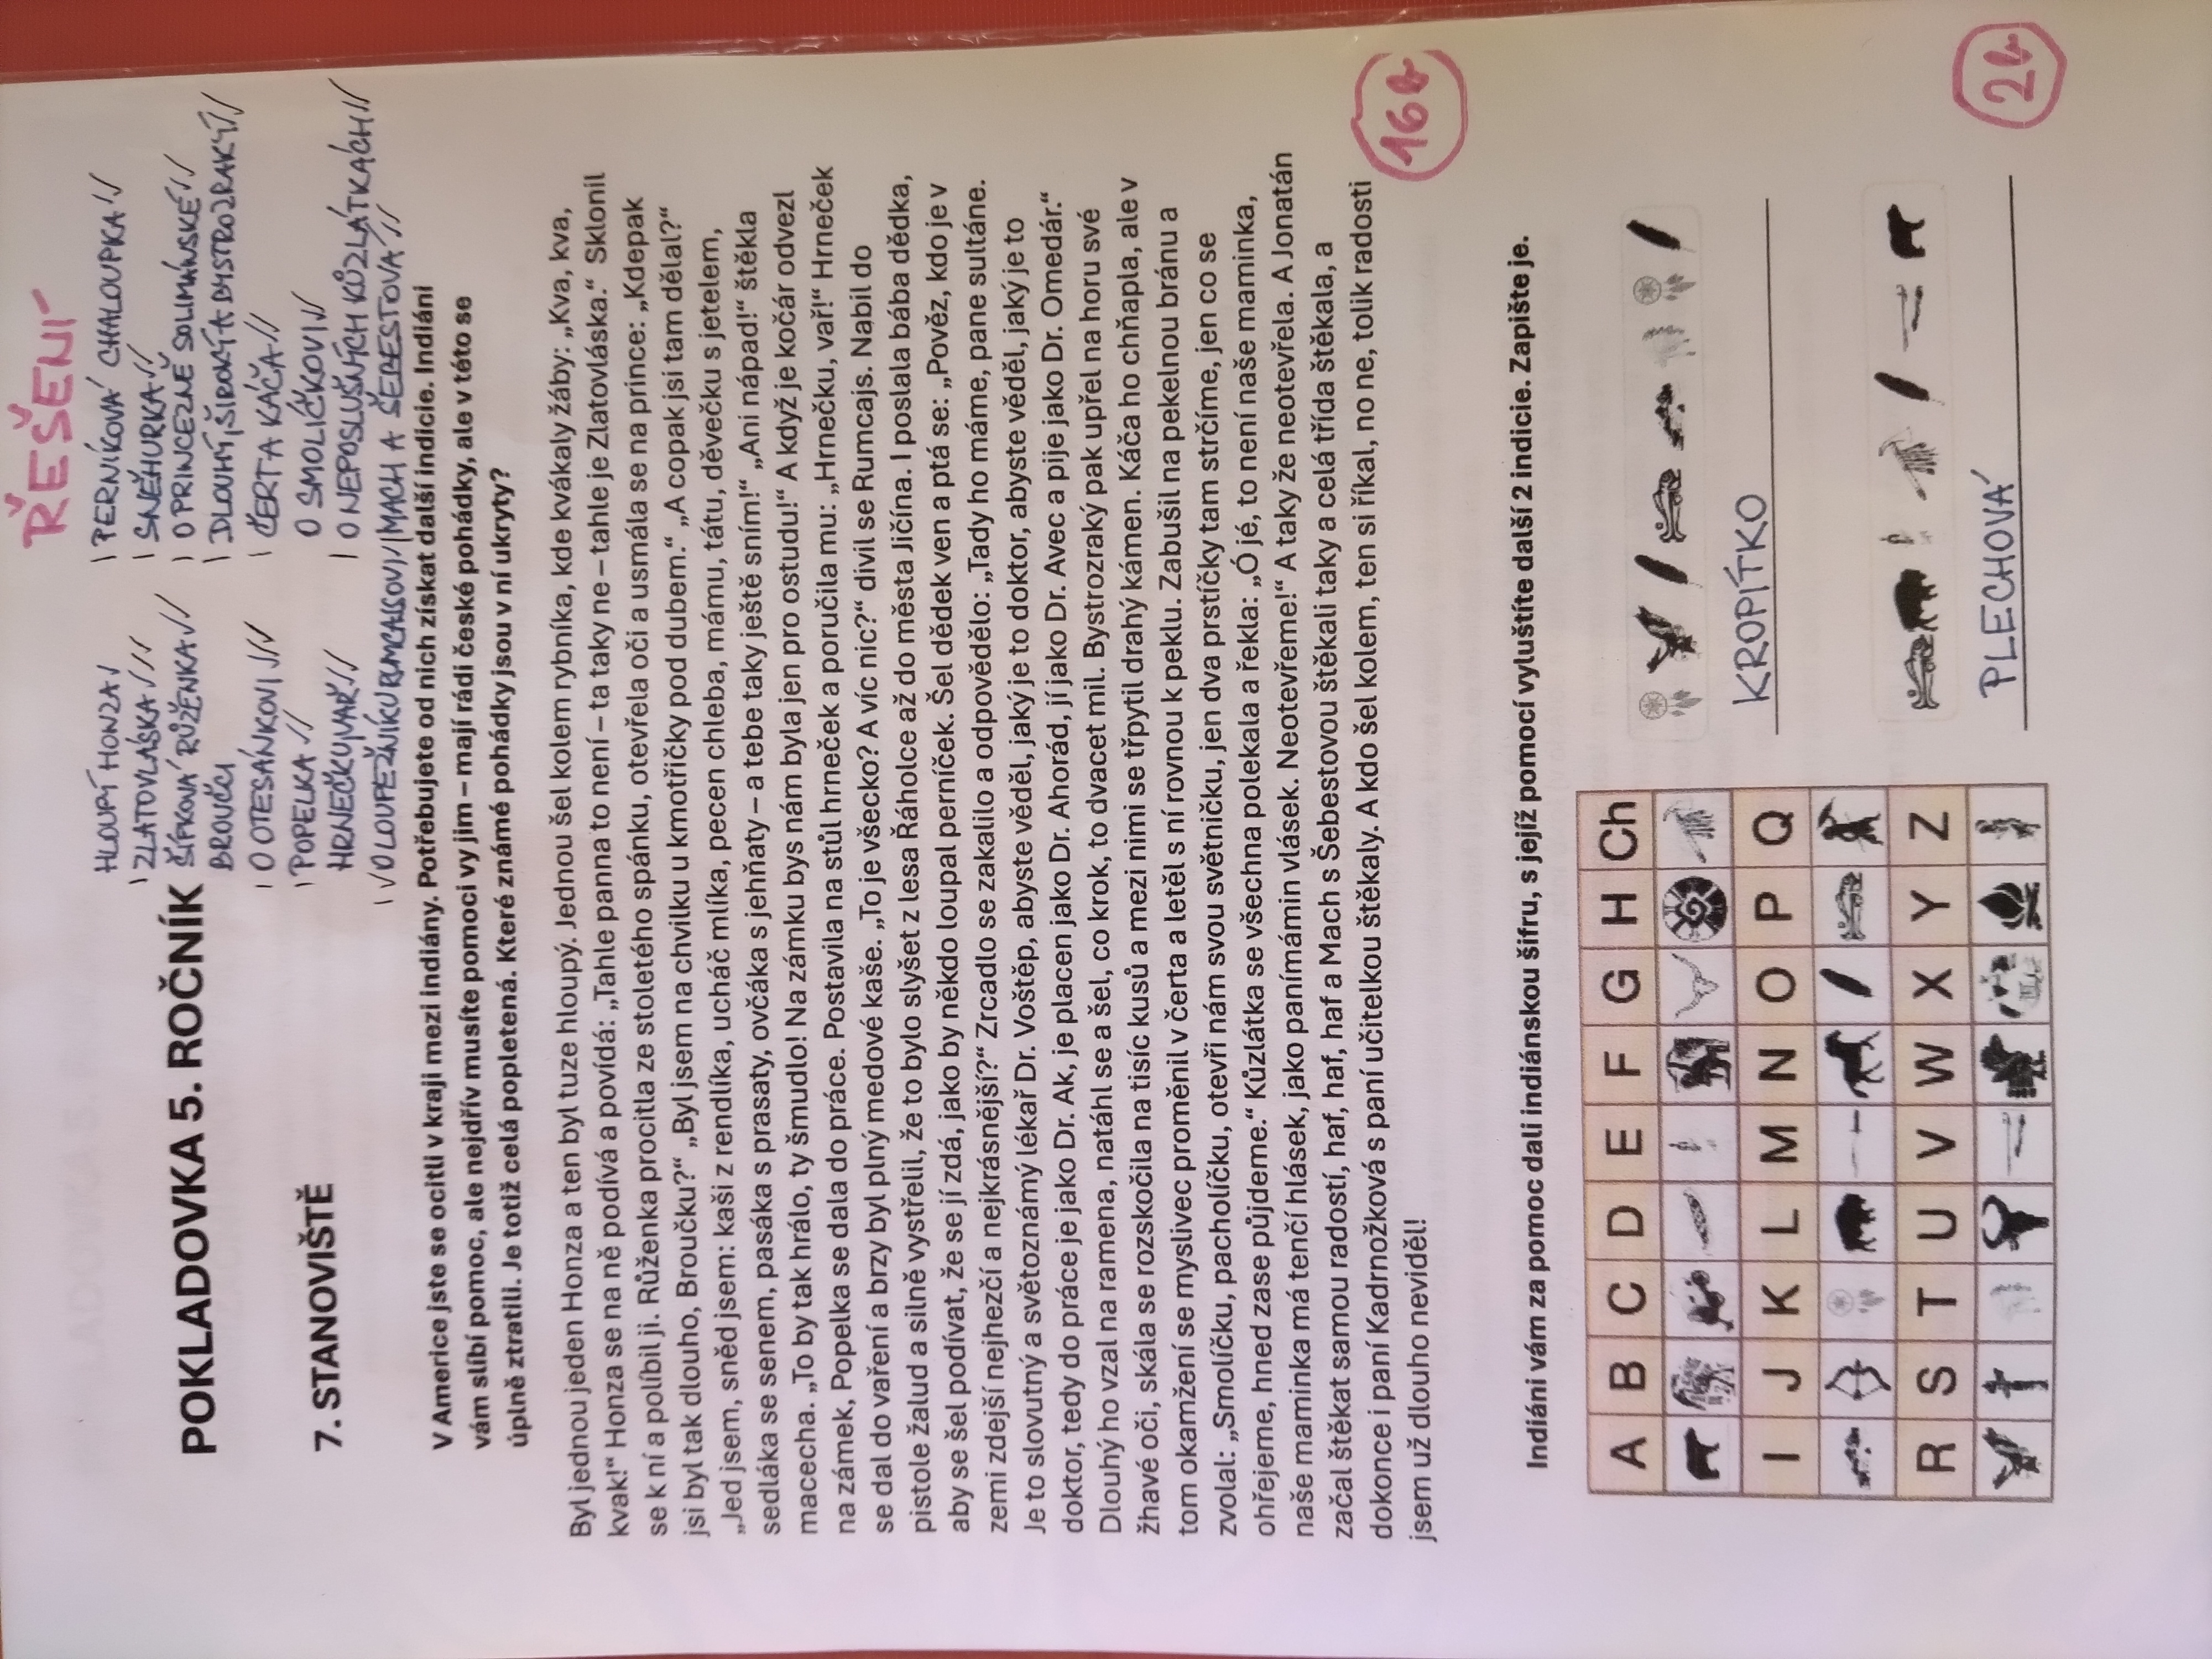 ŘEŠENÍ
HLOUPÝ HONZA
ZLATOVLÁSKA
ŠÍPKOVÁ RŮŽENKA
BROUČCI
O OTESÁNKOVI
POPELKA
HRNEČKU, VAŘ
O LOUPEŽNÍKU RUMCAJSOVI
PERNÍKOVÁ CHALOUPKA
SNĚHURKA
O PRINCEZNĚ SOLIMÁNSKÉ
DLOUHÝ, ŠIROKÝ A BYSTROZRAKÝ
ČERT A KÁČA
O SMOLÍČKOVI
O NEPOSLUŠNÝCH KŮZLÁTKÁCH
MACH A ŠEBESTOVÁ
POKLADOVKA 5. ROČNÍK
7. STANOVIŠTĚ
V Americe jste se ocitli v kraji mezi indiány. Potřebujete od nich získat další indicie. Indiáni
vám slíbí pomoc, ale nejdřív musíte pomoci vy jim – mají rádi české pohádky, ale v této se
úplně ztratili. Je totiž celá popletená. Které známé pohádky jsou v ní ukryty?
Byl jednou jeden Honza a ten byl tuze hloupý. Jednou šel kolem rybníka, kde kvákaly žáby: „Kva, kva,
kvak!“ Honza se na ně podívá a povídá: „Tahle panna to není – ta taky ne – tahle je Zlatovláska.“ Sklonil
se k ní a políbil ji. Růženka procitla ze stoletého spánku, otevřela oči a usmála se na prince: „Kdepak
jsi byl tak dlouho, Broučku?“ „Byl jsem na chvilku u kmotřičky pod dubem.“ „A copak jsi tam dělal?“
„Jed jsem, sněd jsem: kaši z rendlíka, ucháč mlíka, pecen chleba, mámu, tátu, děvečku s jetelem,
sedláka se senem, pasáka s prasaty, ovčáka s jehňaty – a tebe taky ještě sním!“ „Ani nápad!“ štěkla
macecha. „To by tak hrálo, ty šmudlo! Na zámku bys nám byla jen pro ostudu!“ A když je kočár odvezl
na zámek, Popelka se dala do práce. Postavila na stůl hrneček a poručila mu: „Hrnečku, vař!“ Hrneček
se dal do vaření a brzy byl plný medové kaše. „To je všecko? A víc nic?“ divil se Rumcajs. Nabil do
pistole žalud a silně vystřelil, že to bylo slyšet z lesa Řáholce až do města Jičína. I poslala bába dědka,
aby se šel podívat, že se jí zdá, jako by někdo loupal perníček. Šel dědek ven a ptá se: „Pověz, kdo je v
zemi zdejší nejhezčí a nejkrásnější?“ Zrcadlo se zakalilo a odpovědělo: „Tady ho máme, pane sultáne.
Je to slovutný a světoznámý lékař Dr. Voštěp, abyste věděl, jaký je to doktor, abyste věděl, jaký je to
doktor, tedy do práce je jako Dr. Ak, je placen jako Dr. Ahorád, jí jako Dr. Avec a pije jako Dr. Omedár.“
Dlouhý ho vzal na ramena, natáhl se a šel, co krok, to dvacet mil. Bystrozraký pak upřel na horu své
žhavé oči, skála se rozskočila na tisíc kusů a mezi nimi se třpytil drahý kámen. Káča ho chňapla, ale v
tom okamžení se myslivec proměnil v čerta a letěl s ní rovnou k peklu. Zabušil na pekelnou bránu a
zvolal: „Smolíčku, pacholíčku, otevři nám svou světničku, jen dva prstíčky tam strčíme, jen co se
ohřejeme, hned zase půjdeme.“ Kůzlátka se všechna polekala a řekla: „Ó jé, to není naše maminka,
naše maminka má tenčí hlásek, jako panímámin vlásek. Neotevřeme!“ A taky že neotevřela. A Jonatán
začal štěkat samou radostí, haf, haf, haf a Mach s Šebestovou štěkali taky a celá třída štěkala, a
dokonce i paní Kadrnožková s paní učitelkou štěkaly. A kdo šel kolem, ten si říkal, no ne, tolik radosti
jsem už dlouho neviděl!
16 b
Indiáni vám za pomoc dali indiánskou šifru, s jejíž pomocí vyluštíte další 2 indicie. Zapište je.
A B C D E F G H Ch
I J K L M N O P Q
R S T U V W X Y Z
KROPÍTKO
PLECHOVÁ
2 b